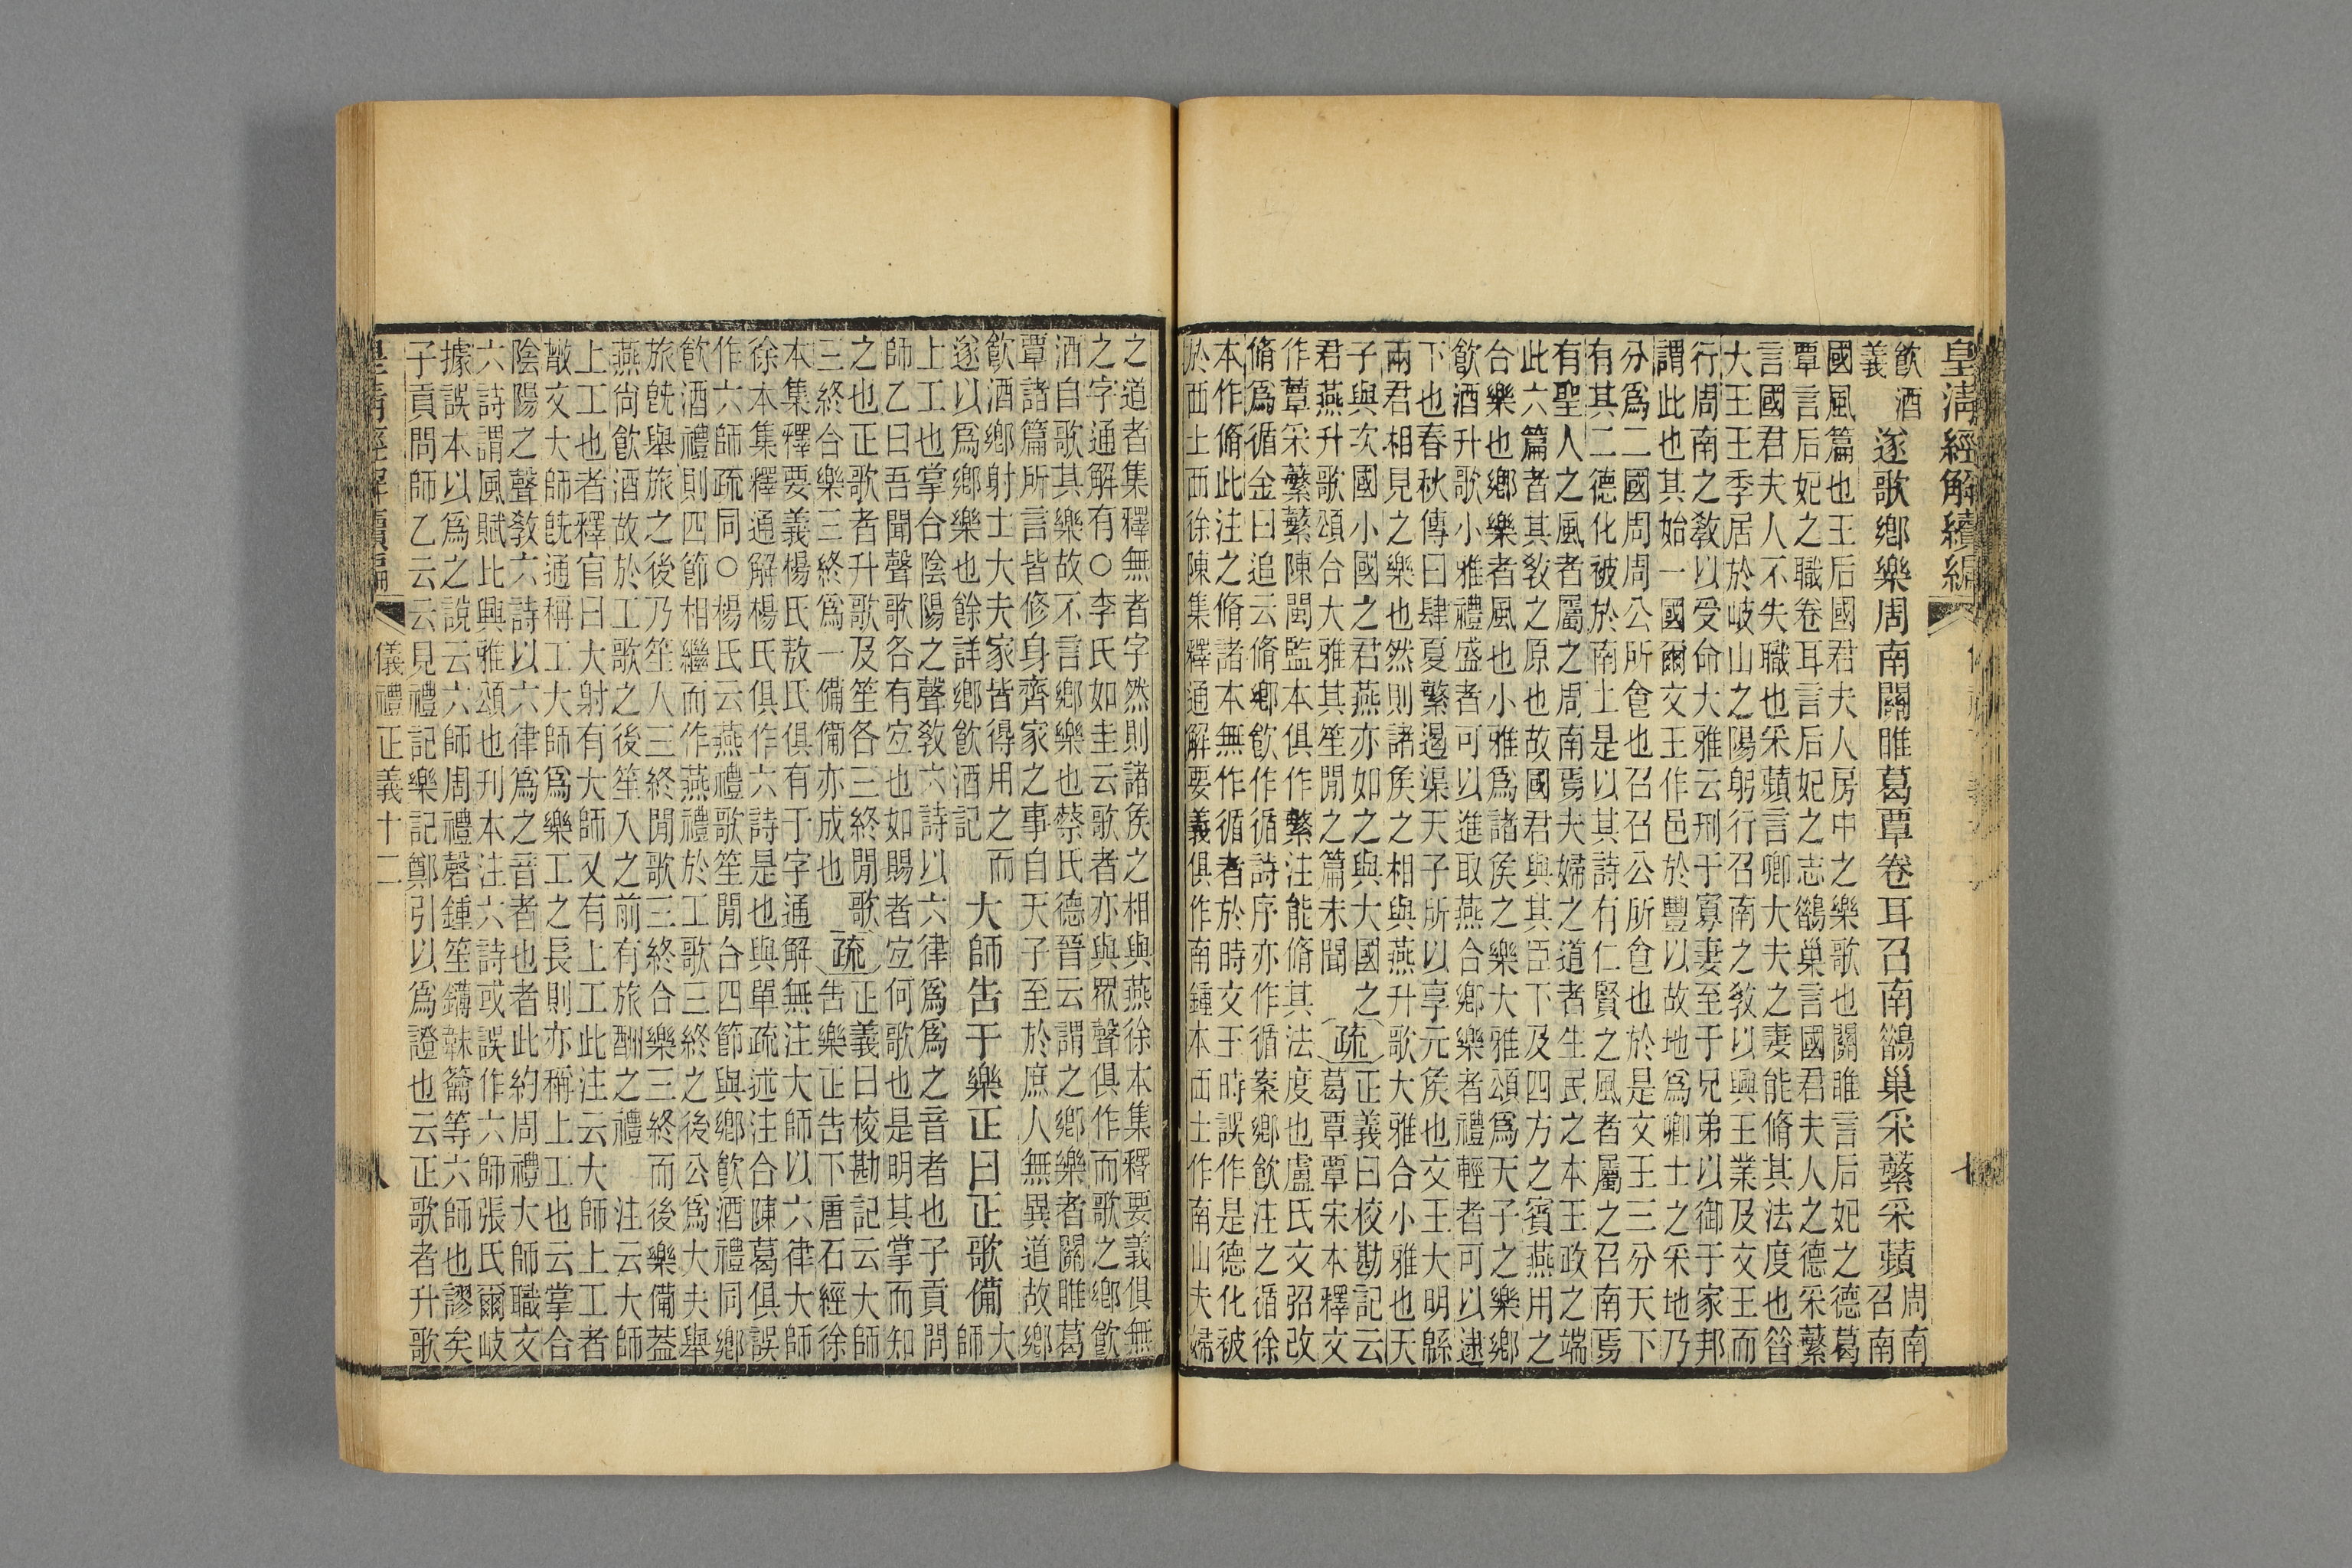 皇清經解續編 七
飲酒
義
遂歌鄉樂周南關雎葛覃卷耳召南鵲巢采蘩采蘋
周南
召南
國風篇也王后國君夫人房中之樂歌也關雎言后妃之德葛
覃言后妃之職卷耳言后妃之志鵲巢言國君夫人之德采蘩
言國君夫人不失職也采蘋言卿大夫之妻能脩其法度也昝
大王王季居於岐山之陽躬行召南之敎以興王業及文王而
行周南之敎以受命大雅云刑于寡妻至于兄弟以御于家邦
謂此也其始一國爾文王作邑於豐以故地爲卿士之采地乃
分爲二國周周公所食也召召公所食也於是文王三分天下
有其二德化被於南土是以其詩有仁賢之風者屬之召南焉
有聖人之風者屬之周南焉夫婦之道者生民之本王政之端
此六篇者其敎之原也故國君與其臣下及四方之賓燕用之
合樂也鄉樂者風也小雅爲諸矦之樂大雅頌爲天子之樂鄉
飲酒升歌小雅禮盛者可以進取燕合鄉樂者禮輕者可以逮
下也春秋傳曰肆夏繁遏渠天子所以享元矦也文王大明緜
兩君相見之樂也然則諸矦之相與燕升歌大雅合小雅也天
子與次國小國之君燕亦如之與大國之
君燕升歌頌合大雅其笙閒之篇未聞
疏
正義曰校勘記云
葛覃覃宋本釋文
作蕈采蘩蘩陳閩監本俱作繁注能脩其法度也盧氏文弨改
脩爲循金曰追云脩鄉飲作循詩序亦作循案鄉飲注之循徐
本作脩此注之脩諸本無作循者於時文王時誤作是德化被
於西土西徐陳集釋通解要義俱作南鍾本西土作南山夫婦
之道者集釋無者字然則諸矦之相與燕徐本集釋要義俱無
之字通解有○李氏如圭云歌者亦與眾聲俱作而歌之鄉飲
酒自歌其樂故不言鄉樂也蔡氏德晉云謂之鄉樂者關雎葛
覃諸篇所言皆修身齊家之事自天子至於庶人無異道故鄉
飲酒鄉射士大夫家皆得用之而
遂以爲鄉樂也餘詳鄉飲酒記
大師告于樂正曰正歌備
大
師
上工也掌合陰陽之聲敎六詩以六律爲之音者也子貢問
師乙曰吾聞聲歌各有宜也如賜者宜何歌也是明其掌而知
之也正歌者升歌及笙各三終閒歌
三終合樂三終爲一備備亦成也
疏
正義曰校勘記云大師
告樂正告下唐石經徐
本集釋要義楊氏敖氏俱有于字通解無注大師以六律大師
徐本集釋通解楊氏俱作六詩是也與單疏述注合陳葛俱誤
作六師疏同○楊氏云燕禮歌笙閒合四節與鄉飲酒禮同鄉
飲酒禮則四節相繼而作燕禮於工歌三終之後公爲大夫舉
旅旣舉旅之後乃笙入三終閒歌三終合樂三終而後樂備葢
燕尚飲酒故於工歌之後笙入之前有旅酬之禮 注云大師
上工也者釋官曰大射有大師又有上工此注云大師上工者
散文大師旣通稱工大師爲樂工之長則亦稱上工也云掌合
陰陽之聲敎六詩以六律爲之音者也者此約周禮大師職文
六詩謂風賦此興雅頌也刊本注六詩或誤作六師張氏爾岐
據誤本以爲之說云六師周禮磬鍾笙鎛韎籥等六師也謬矣
子貢問師乙云云見禮記樂記鄭引以爲證也云正歌者升歌
皇清經解續編 儀禮正義十二 八